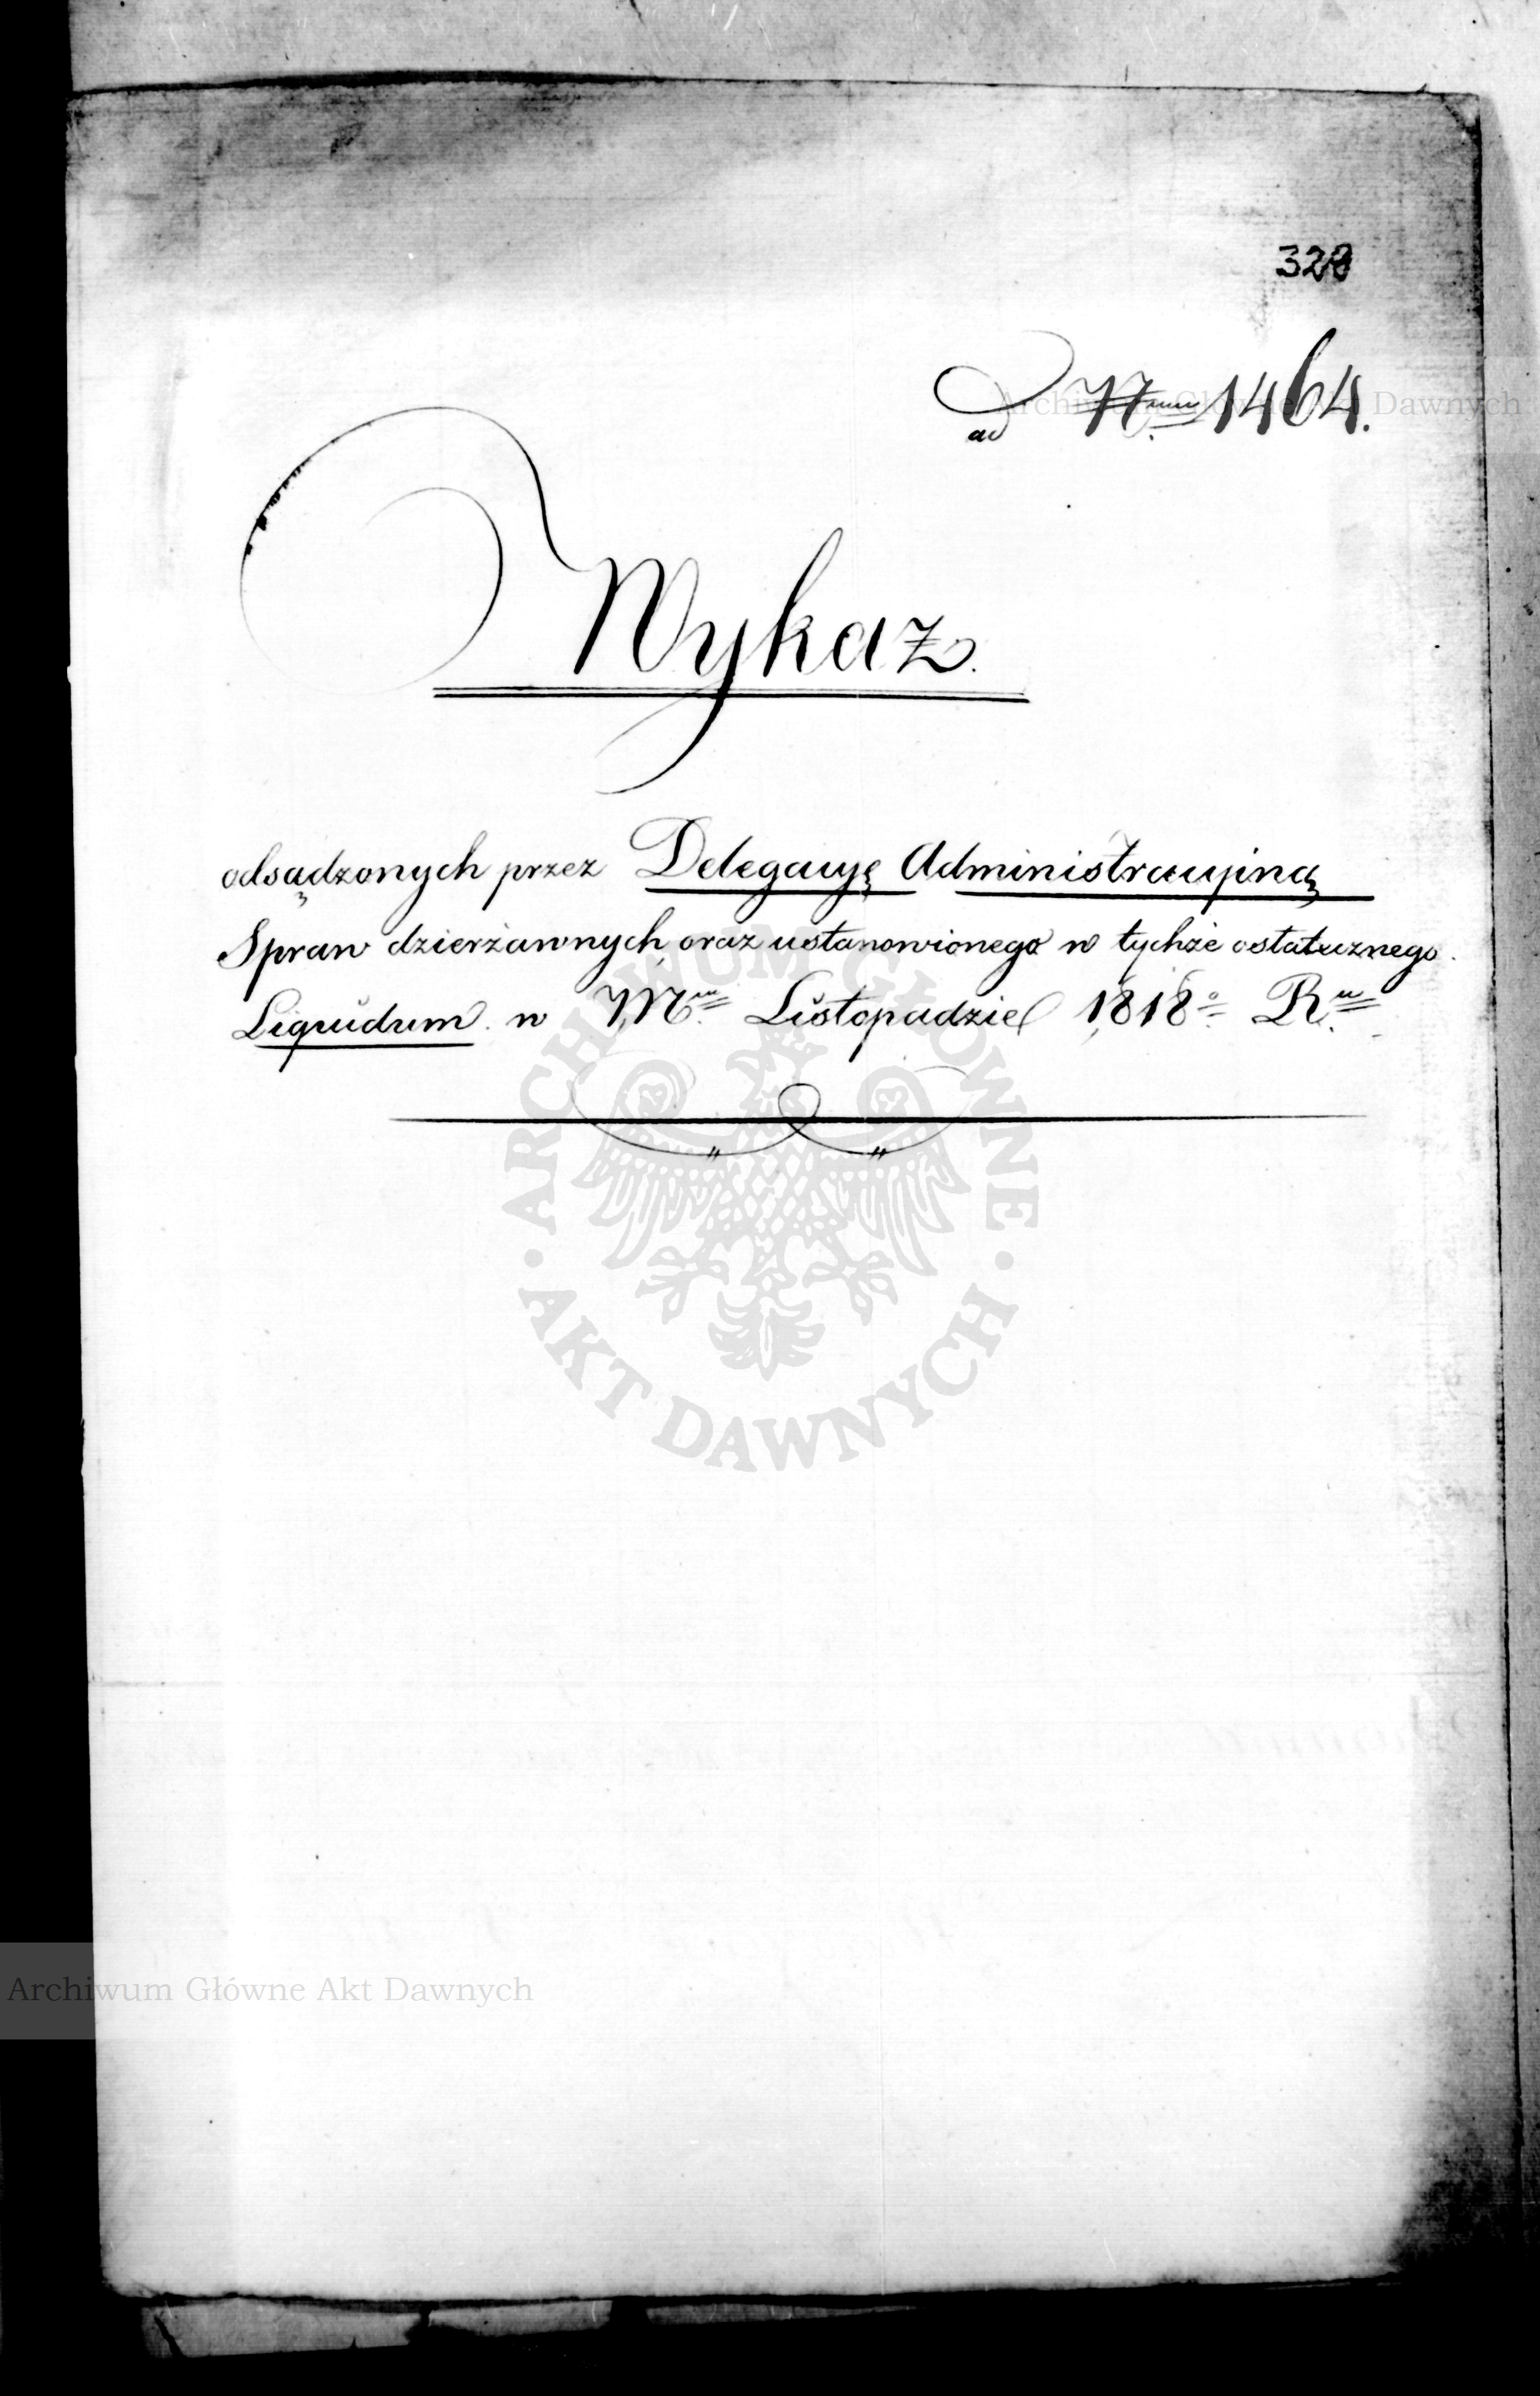 328
ad Nrum 1464.
Wykaz.
odsądzonych przez Delegacyę Administracyiną
Spraw dzierżawnych, oraz ustanowionego w tychże ostatecznego
Liquidum w Mcu Listopadzie 1818o Ru
Archiwum Główne Akt Dawnych
ARCHIWUM GŁÓWNE
AKT DAWNYCH
Archiwum Główne Akt Dawnych